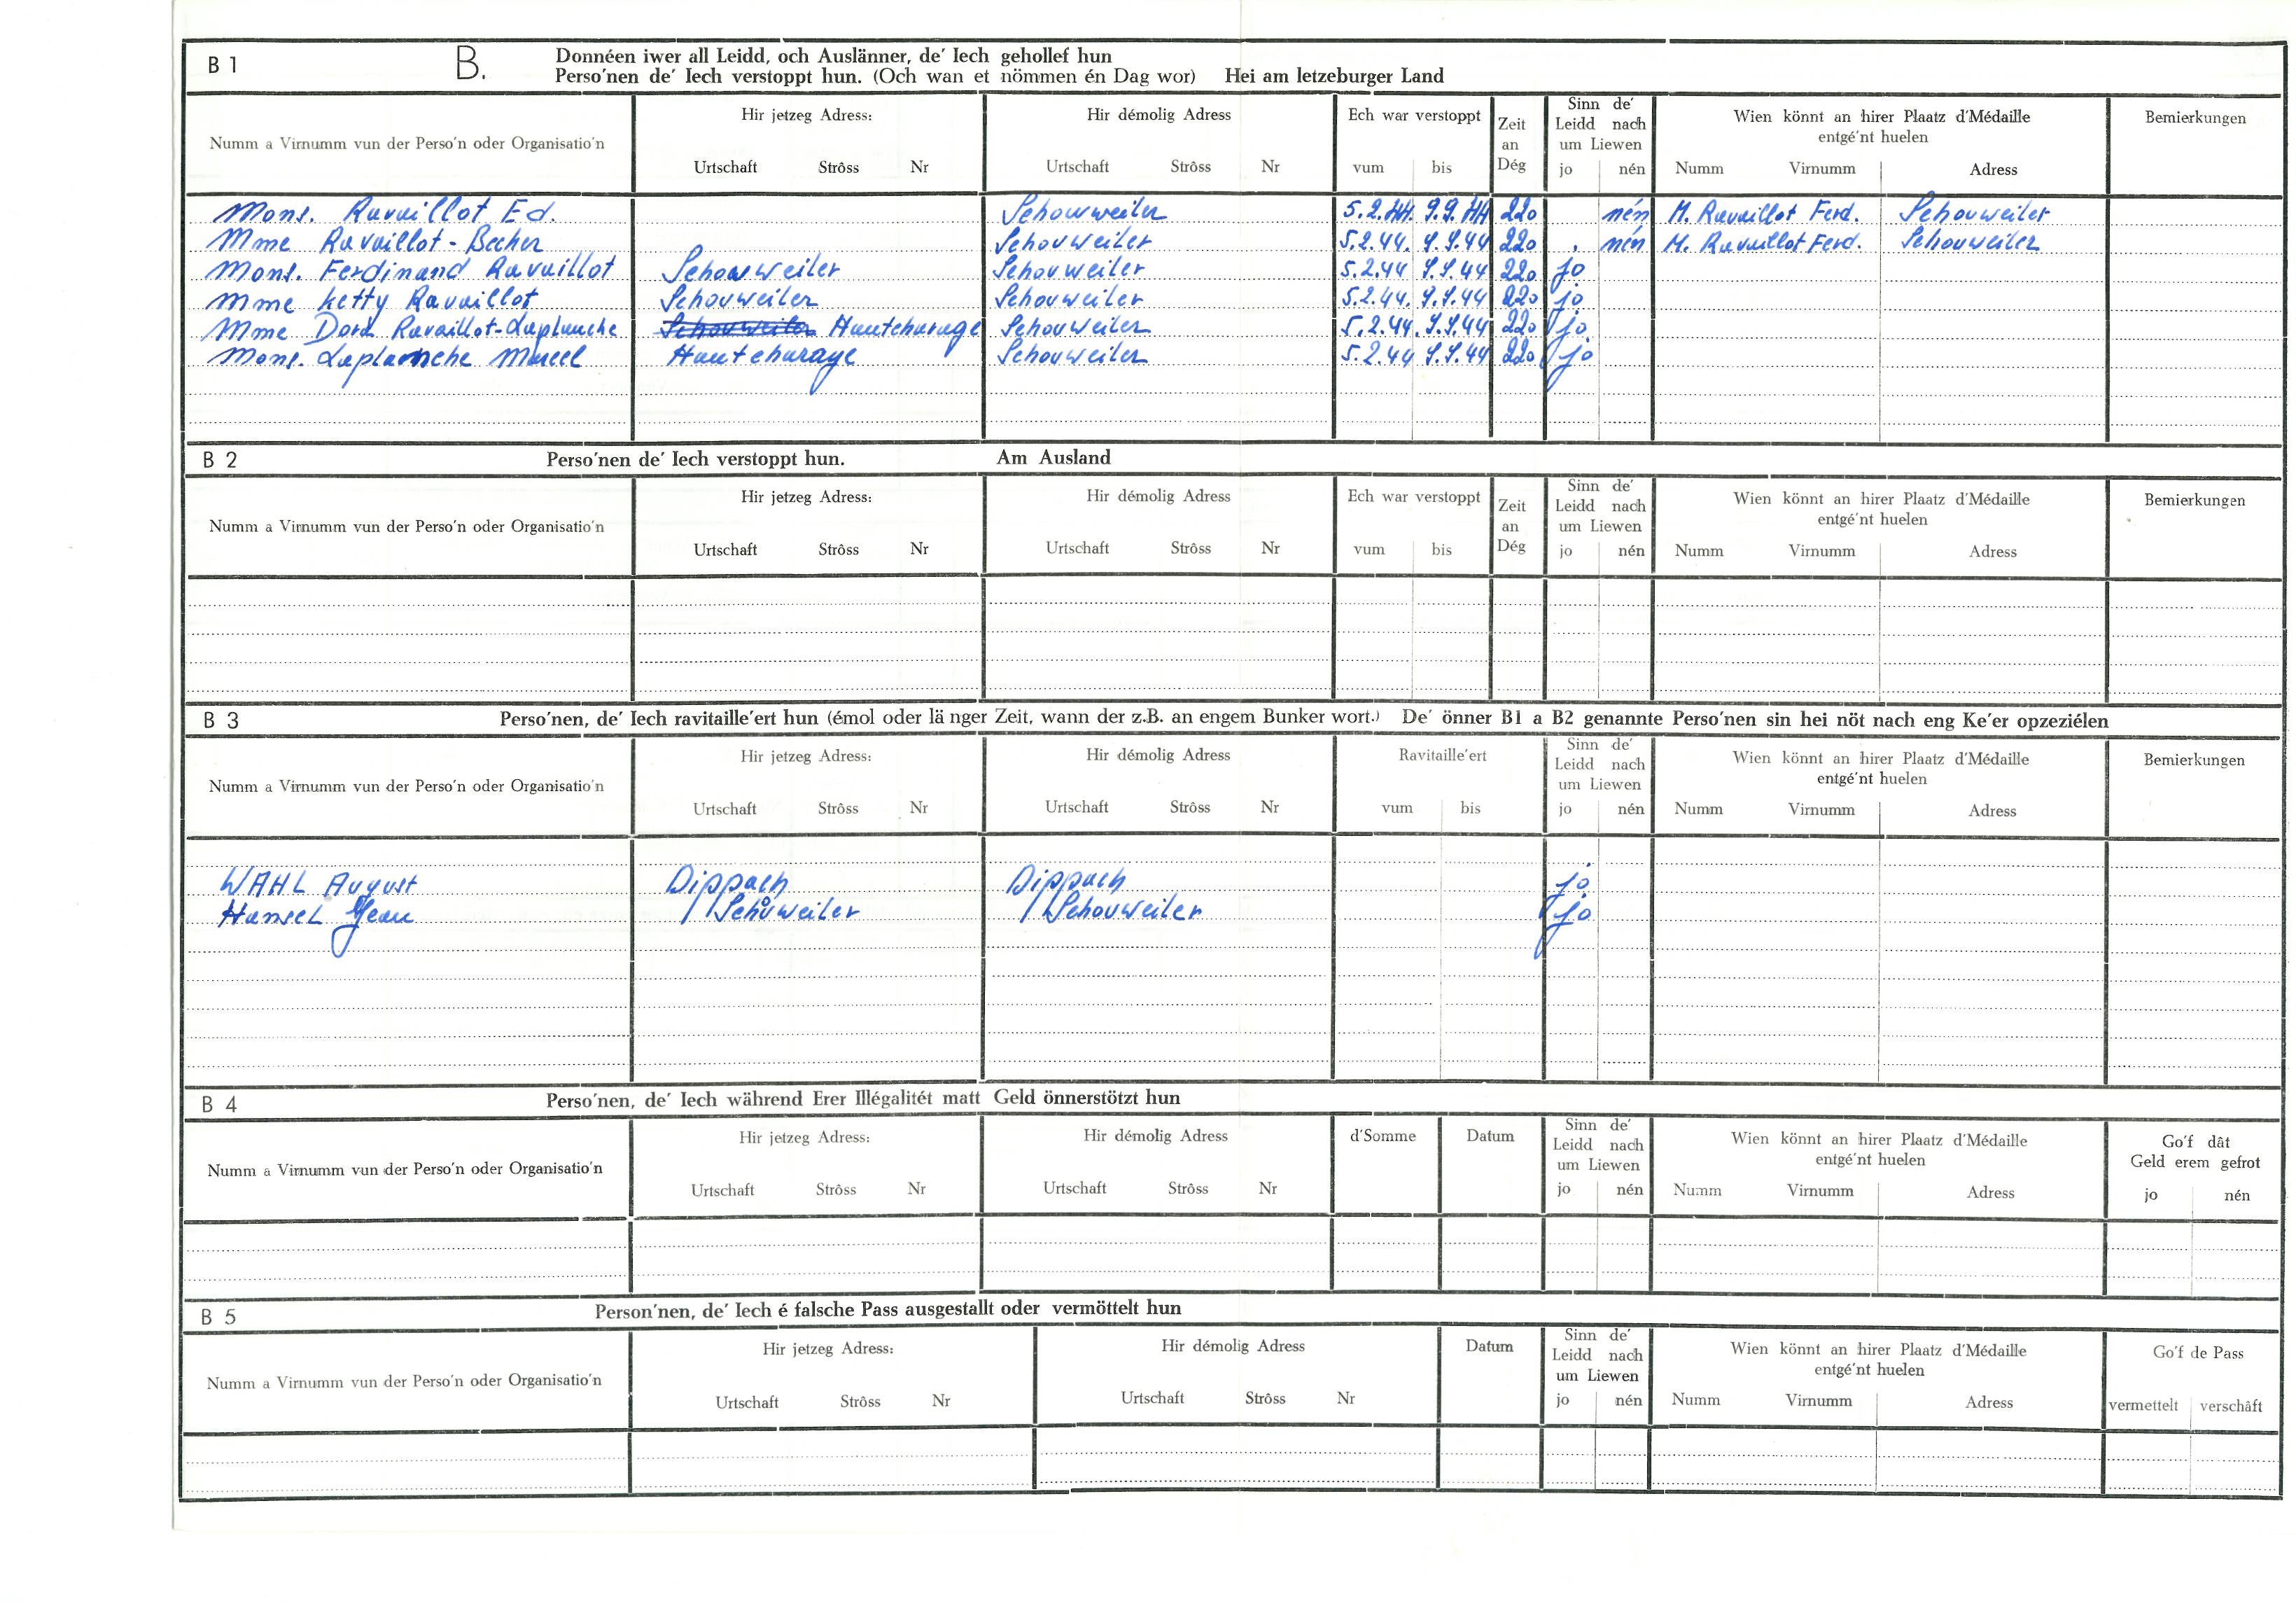 B 1 B. Donnéen iwer all Leidd, och Auslänner, de' Iech gehollef hun
Perso'nen de' Iech verstoppt hun. (Och wan et nömmen én Dag wor) Hei am letzeburger Land
Numm a Virnumm vun der Perso'n oder Organisatio'n
Hir jetzeg Adress:
Urtschaft Strôss Nr
Hir démolig Adress
Urtschaft Strôss Nr
Ech war verstoppt
vum bis
Zeit
an
Dég
Sinn de'
Leidd nach
um Liewen
jo nén
Wien könnt an hirer Plaatz d'Médaille
entgé'nt huelen
Numm Virnumm Adress
Bemierkungen
Mons. Ravaillot Ed. Schouweiler 5.2.44. 9.9.44 220 nén M. Ravaillot Ferd. Schouweiler
Mme Ravaillot-Becker Schouweiler 5.2.44. 9.9.44 220 nén M. Ravaillot Ferd. Schouweiler
Mons. Ferdinand Ravaillot Schouweiler Schouweiler 5.2.44 9.9.44 220 jo
Mme Ketty Ravaillot Schouweiler Schouweiler 5.2.44. 9.9.44 220 jo
Mme Dora Ravaillot-Laplanche Schouweiler Hautcharage Schouweiler 5.2.44. 9.9.44 220 jo
Mons. Laplanche Marcel Hautcharage Schouweiler 5.2.44 9.9.44 220 jo
B 2 Perso'nen de' Iech verstoppt hun. Am Ausland
Numm a Virnumm vun der Perso'n oder Organisatio'n
Hir jetzeg Adress:
Urtschaft Strôss Nr
Hir démolig Adress
Urtschaft Strôss Nr
Ech war verstoppt
vum bis
Zeit
an
Dég
Sinn de'
Leidd nach
um Liewen
jo nén
Wien könnt an hirer Plaatz d'Médaille
entgé'nt huelen
Numm Virnumm Adress
Bemierkungen
B 3 Perso'nen, de' Iech ravitaille'ert hun (émol oder lä nger Zeit, wann der z.B. an engem Bunker wort.) De' önner B1 a B2 genannte Perso'nen sin hei nöt nach eng Ke'er opzeziélen
Numm a Virnumm vun der Perso'n oder Organisatio'n
Hir jetzeg Adress:
Urtschaft Strôss Nr
Hir démolig Adress
Urtschaft Strôss Nr
Ravitaille'ert
vum bis
Sinn de'
Leidd nach
um Liewen
jo nén
Wien könnt an hirer Plaatz d'Médaille
entgé'nt huelen
Numm Virnumm Adress
Bemierkungen
WAHL August Dippach Dippach jo
Hansel Jean Schouweiler Schouweiler jo
B 4 Perso'nen, de' Iech während Erer Illégalitét matt Geld önnerstötzt hun
Numm a Virnumm vun der Perso'n oder Organisatio'n
Hir jetzeg Adress:
Urtschaft Strôss Nr
Hir démolig Adress
Urtschaft Strôss Nr
d'Somme
Datum
Sinn de'
Leidd nach
um Liewen
jo nén
Wien könnt an hirer Plaatz d'Médaille
entgé'nt huelen
Numm Virnumm Adress
Go'f dât
Geld erem gefrot
jo nén
B 5 Person'nen, de' Iech é falsche Pass ausgestallt oder vermöttelt hun
Numm a Virnumm vun der Perso'n oder Organisatio'n
Hir jetzeg Adress:
Urtschaft Strôss Nr
Hir démolig Adress
Urtschaft Strôss Nr
Datum
Sinn de'
Leidd nach
um Liewen
jo nén
Wien könnt an hirer Plaatz d'Médaille
entgé'nt huelen
Numm Virnumm Adress
Go'f de Pass
vermettelt verschâft